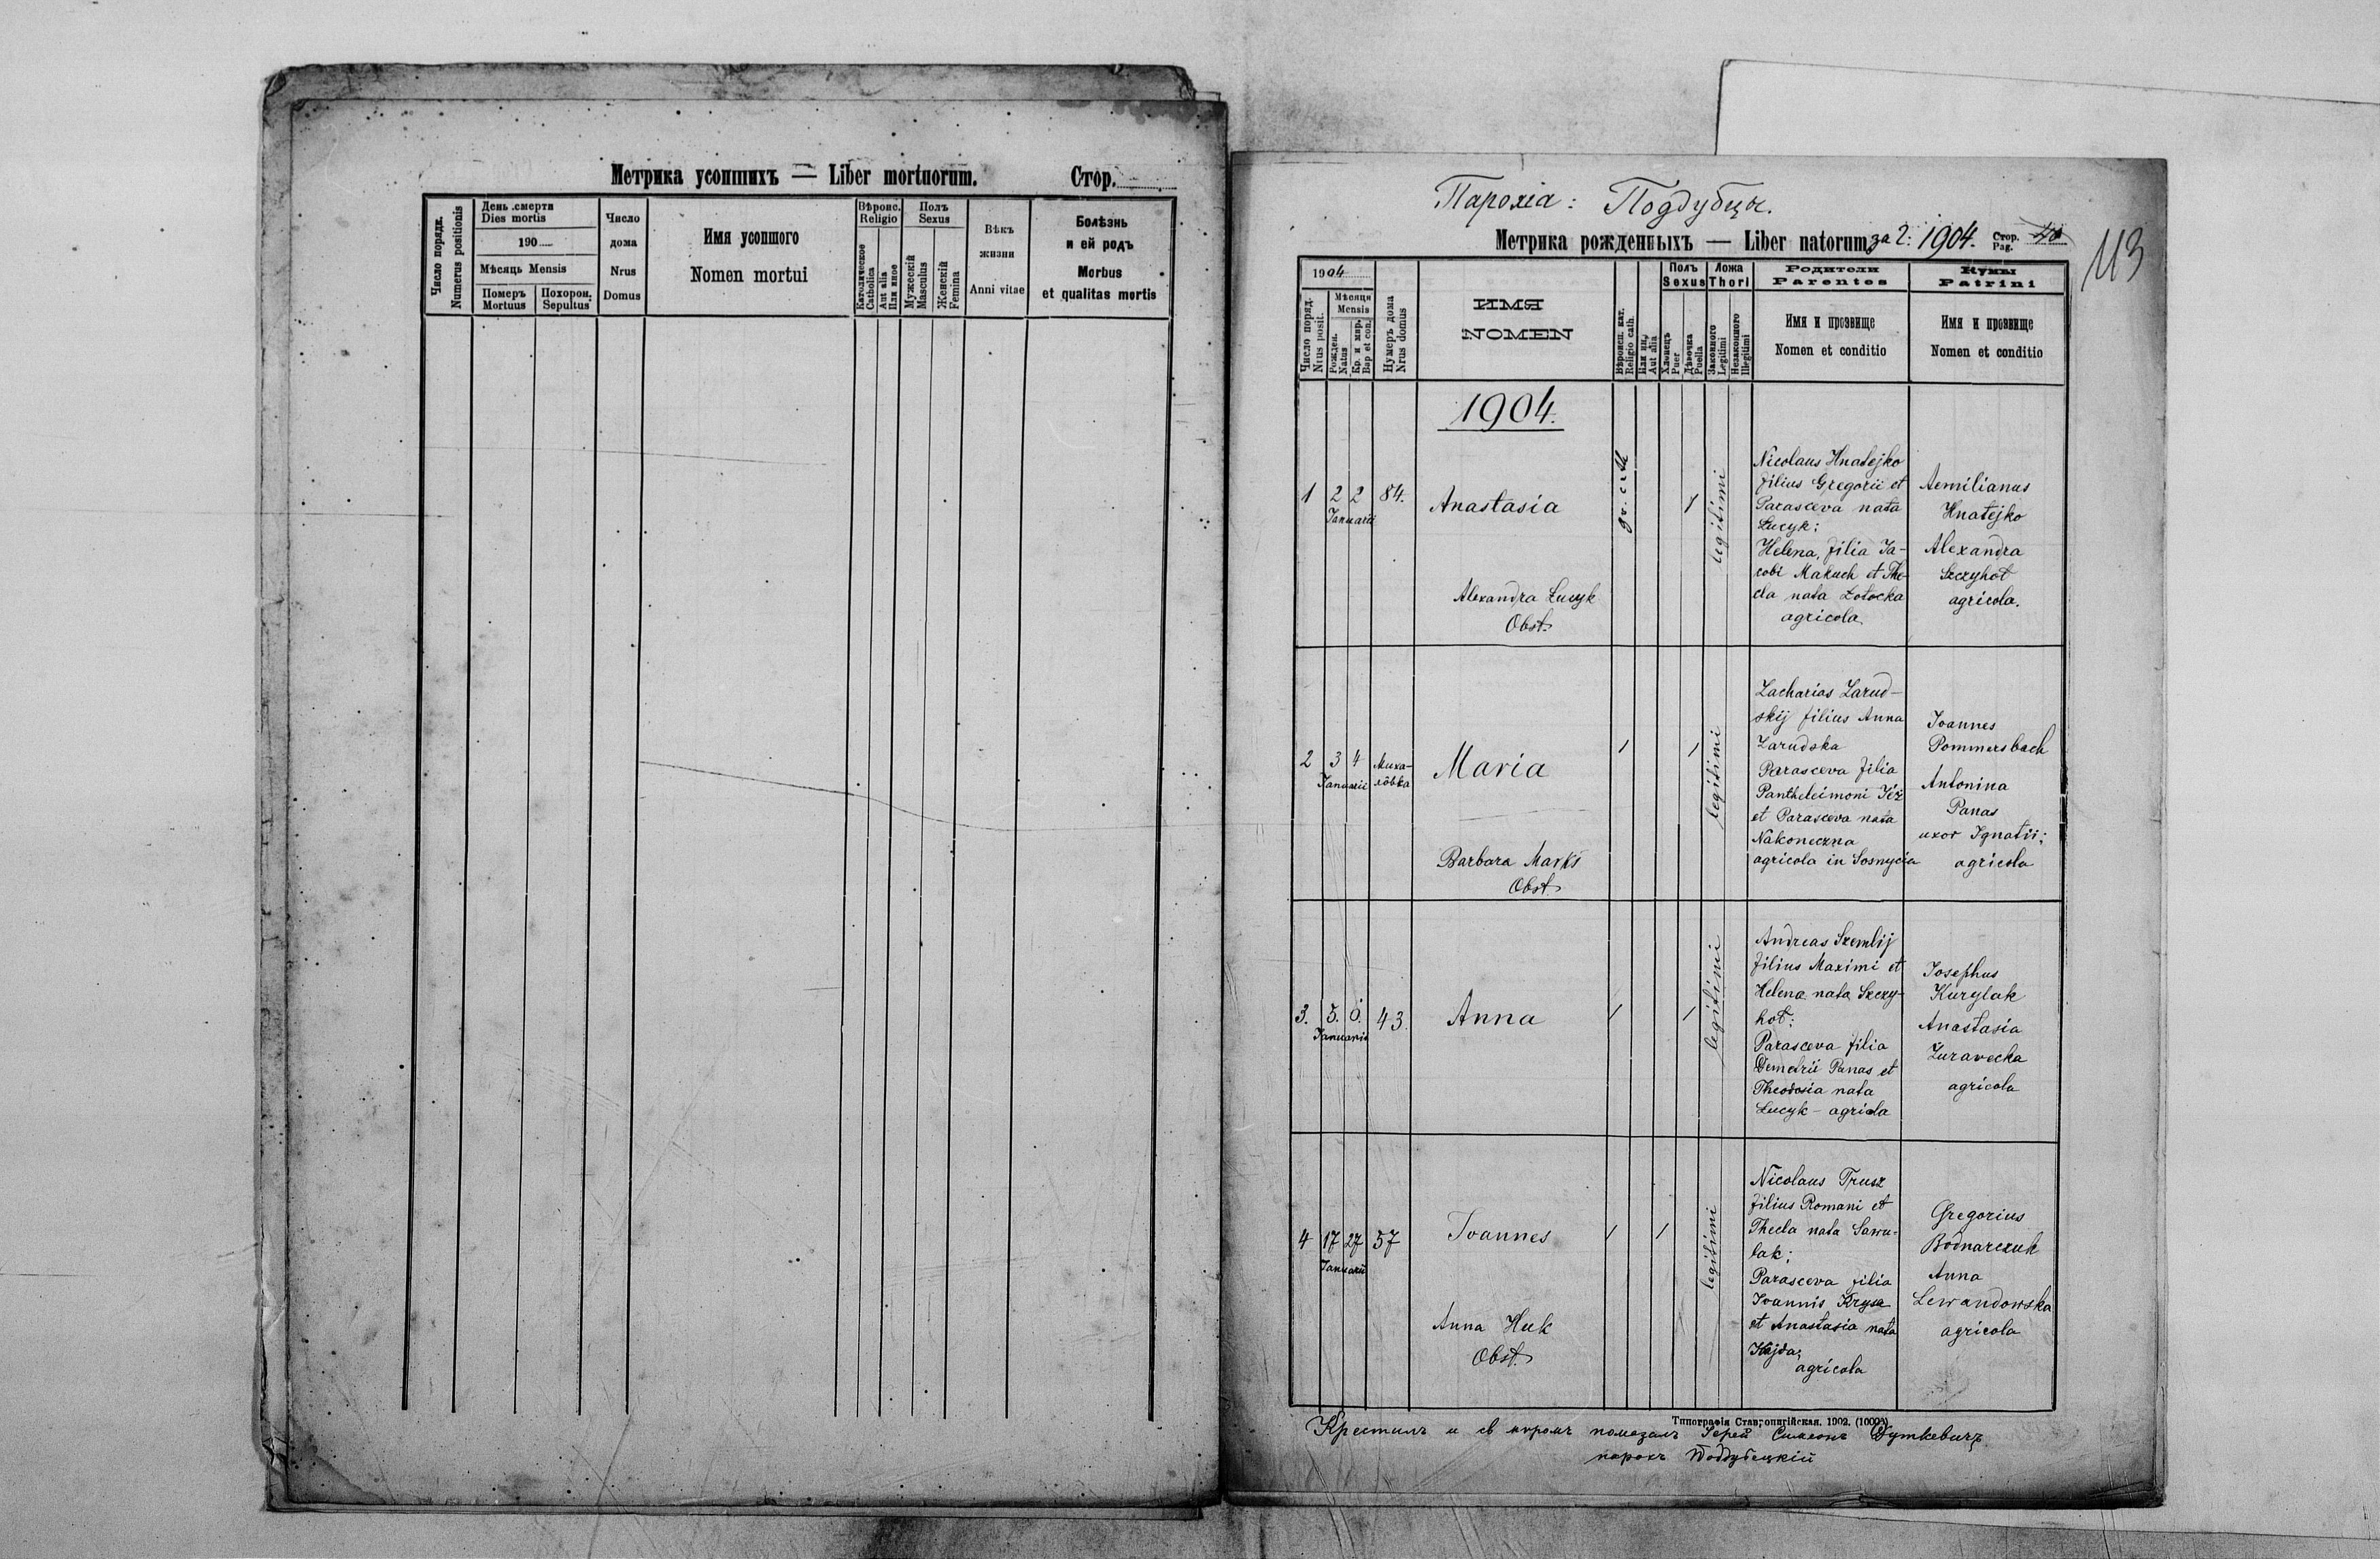 Метрика усопшихъ — Liber mortuorum. Стор.
Число порядк. Numerus positionis
День смерти
Dies mortis
190
Мѣсяць Mensis
Померъ Mortuus
Похорон. Sepultus
Число дома Nrus Domus
Имя усопшого
Nomen mortui
Вѣроис. Religio
Католическое Catholica
Aut alia Или иное
Полъ Sexus
Мужескій Masculus
Женскій Femina
Вѣкъ жизни Anni vitae
Болѣзнь
и ей родъ
Morbus
et qualitas mortis
Парохіа: Поддубцы.
Метрика рожденныхъ — Liber natorum за 2: 1904. Стор. Pag. 40
113
1904
Число поряд. Nrus posit.
Мѣсяця Mensis
Рожден. Natus
Кр. и мир. Bap et con.
Нумеръ дома Nrus domus
ИМЯ
NOMEN
Вѣроисп. кат. Religio cath.
Или ин. Aut alia
Полъ Sexus
Хлопецъ Puer
Дѣвочка Puella
Ложа Thori
Законного Legitimi
Незаконного Illegitimi
Родители
Parentes
Имя и прозвище
Nomen et conditio
Кумы
Patrini
Имя и прозвище
Nomen et conditio
1904.
1 2 2 84.
Januarii
Anastasia
Alexandra Łucyk
Obst.
gr. cath
1
legitimi
Nicolaus Hnatejko
filius Gregorii et
Parasceva nata
Łucyk;
Helena, filia Ja-
cobi Makuch et The-
cla nata Zotocka
agricola
Aemilianus
Hnatejko
Alexandra
Szczyhot
agricola.
2 3 4 Миха-
Januarii лôвка
Maria
Barbara Marks
Obst.
1 1
legitimi
Zacharias Zarud-
skij filius Anna
Zarudska
Parasceva filia
Pantheleimoni Jéż
et Parasceva nata
Nakoneczna
agricola in Sosnycia
Joannes
Pommersbach
Antonina
Panas
uxor Ignatii;
agricola
3. 5. 6. 43.
Januarii
Anna
1 1
legitimi
Andreas Szemlij
filius Maximi et
Helena nata Szczy-
hot;
Parasceva filia
Demetrii Panas et
Theodosia nata
Łucyk - agricola
Josephus
Kurylak
Anastasia
Żurawecka
agricola
4 17 27 57
Januarii
Joannes
Anna Huk
Obst.
1 1
legitimi
Nicolaus Trusz
filius Romani et
Thecla nata Sawu-
lak;
Parasceva filia
Joannis Krysa
et Anastasia nata
Hajda;
agricola
Gregorius
Bodnarczuk
Anna
Lewandowska
agricola
Типографія Ставропигійская. 1902. (1000)
Крестилъ и св муромъ помазалъ Іерей Симеонъ Дуткевичъ
парохъ Поддубецкій